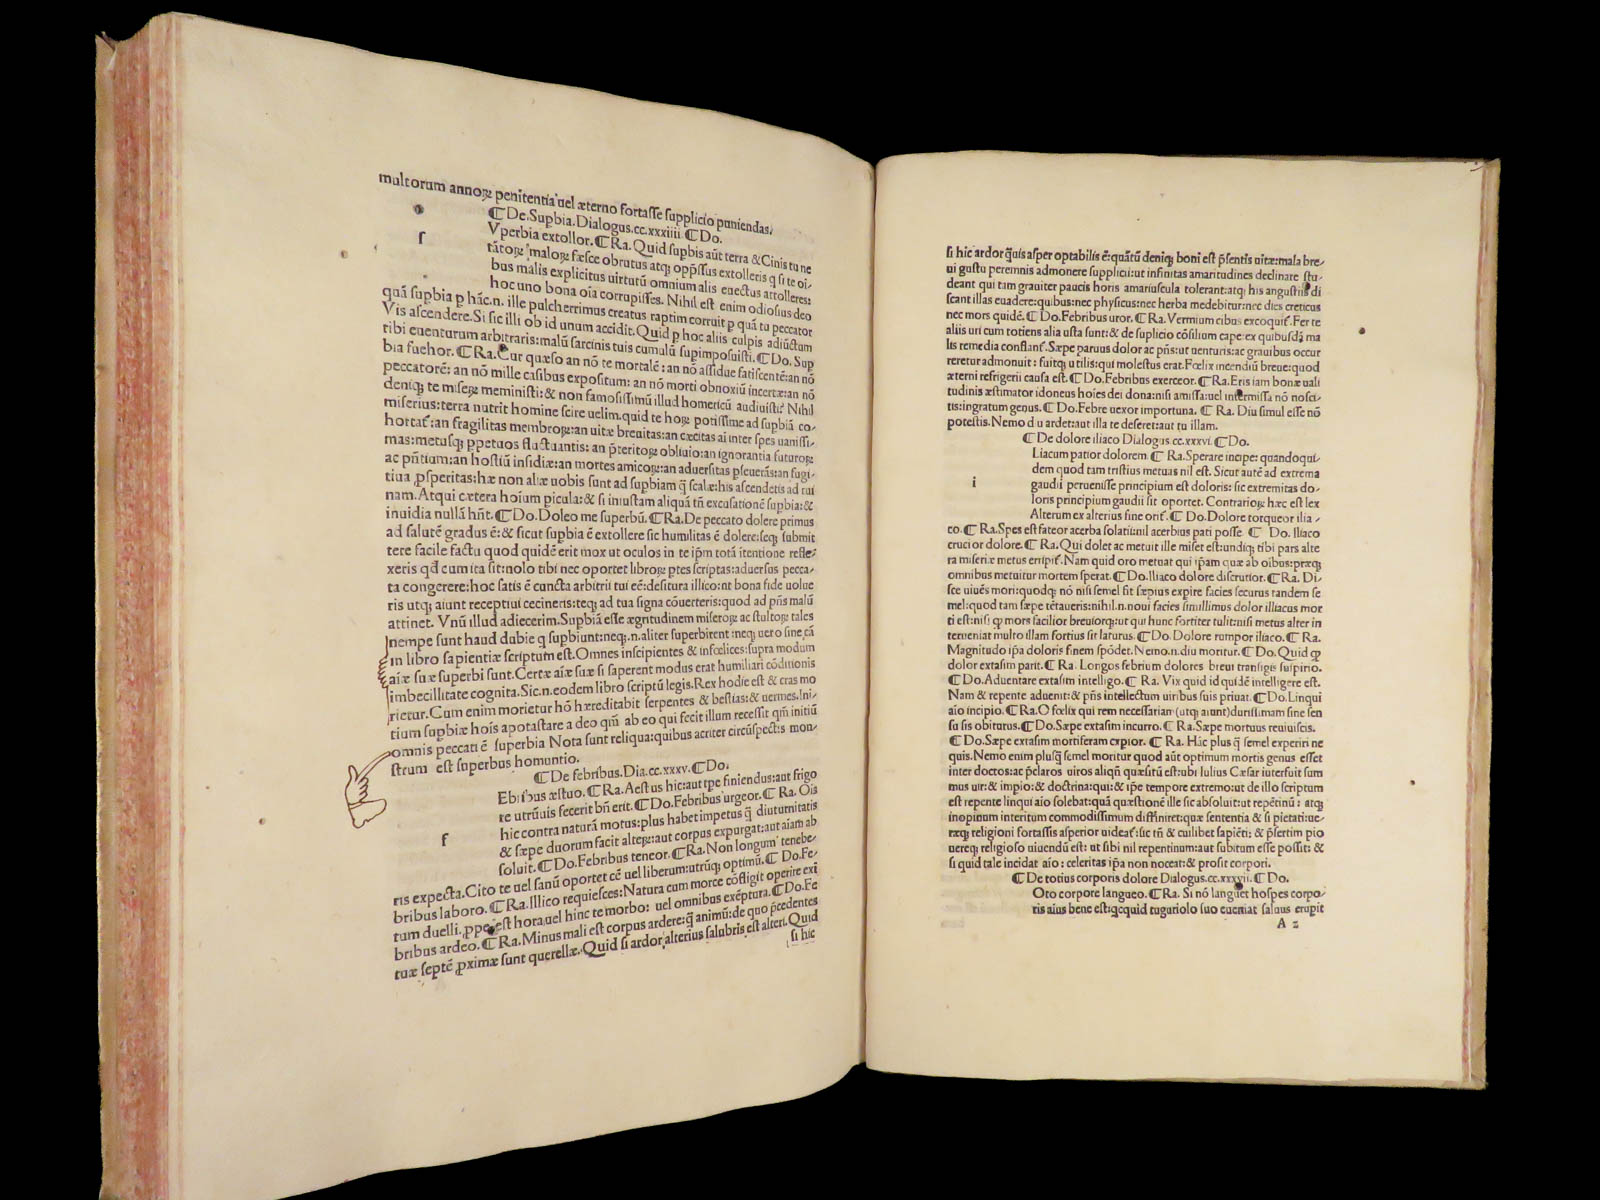 multorum annoꝝ penitentia uel æterno fortasse supplicio puniendas.
¶ De. Supbia. Dialogus. cc.xxxiiii. ¶ Do.
f
Vperbia extollor. ¶ Ra. Quid supbis aūt terra & Cinis tu ne
bus malis explicitus uirtutū omnium alis euectus attolleres:
hoc uno bona oīa corrupisses. Nihil est enim odiosius deo
quā supbia p hāc. n. ille pulcherrimus creatus raptim corruit p quā tu peccator
Vis ascendere. Si sic illi ob id unum accidit. Quid p hoc aliis culpis adiūctum
tibi euenturum arbitraris: malū sarcinis tuis cumulū supimposuisti. ¶ Do. Sup
bia fuehor. ¶ Ra. Cur quæso an nō te mortalē: an nō assidue fatiscentē: an nō
peccatorē: an nō mille casibus expositum: an nō morti obnoxiū incertæ: an nō
deniqꝫ te miseꝝ meministi: & non famosissimū illud homericū audiuisti? Nihil
miserius: terra nutrit homine scire uelim. quid te hoꝝ potissime ad supbiā co-
hortat᷑: an fragilitas membroꝝ: an uitæ breuitas: an cæcitas aī inter spes uanissi-
mas: metusqꝫ ppetuos fluctuantis: an p̄teritoꝝ obliuio: an ignorantia futuroꝝ
ac pn̄tium: an hostiū insidiæ: an mortes amicoꝝ: an aduersitas pseuerās: an fugi-
tiua ꝓsperitas: hæ non aliæ uobis sunt ad supbiam q̄ scalæ: his ascendetis ad rui
nam. Atqui cætera hoīum picula: & si iniustam aliquā tn̄ excusationē supbia: &
inuidia nullā hn̄t. ¶ Do. Doleo me superbū. ¶ Ra. De peccato dolere primus
ad salutē gradus ē: & sicut supbia ē extollere sic humilitas ē dolere: seqꝫ submit
tere facile factu quod quidē erit mox ut oculos in te ip̄m totā itentione refle-
xeris qd̄ cum ita sit: nolo tibi nec oportet libroꝝ ptes scriptas: aduersus pecca-
ta congerere: hoc satis ē cuncta arbitrii tui eē: desitura illico: nt bona fide uolue
ris utqꝫ aiunt receptiui cecineris: teqꝫ ad tua signa cōuerteris: quod ad pn̄s malū
attinet. Vnū illud adiecerim. Supbiā esse ægritudinem miseroꝝ ac stultoꝝ tales
nempe sunt haud dubie q supbiunt: neqꝫ. n. aliter superbirent: neqꝫ uero sine cā
in libro sapientiæ scriptum est. Omnes insipientes & infœlices: supra modum
aīæ suæ superbi sunt. Certæ aīæ suæ si saperent modus erat humiliari cōditionis
imbecillitate cognita. Sic. n. eodem libro scriptū legis. Rex hodie est & cras mo
rietur. Cum enim morietur hō hæreditabit serpentes & bestias: & uermes. Ini-
tium supbiæ hoīs apotastare a deo qm̄ ab eo qui fecit illum recessit qm̄ initiū
omnis peccati ē superbia Nota sunt reliqua: quibus acriter circūspectis mon-
strum est superbus homuntio.
¶ De febribus. Dia. cc.xxxv. ¶ Do.
f
Ebribus æstuo. ¶ Ra. Aestus hic: aut tpe finiendus: aut frigo
re utrūuis fecerit bn̄ erit. ¶ Do. Febribus urgeor. ¶ Ra. Oīs
hic contra naturā motus: plus habet impetus q̄ diuturnitatis
& sæpe duorum facit alteꝝ: aut corpus expurgat: aut aīam ab
soluit. ¶ Do. Febribus teneor. ¶ Ra. Non longum tenebe-
ris expecta. Cito te uel sanū oportet eē uel liberum: utrūqꝫ optimū. ¶ Do. Fe-
bribus laboro. ¶ Ra. Illico requiesces: Natura cum morte cōfligit operire exi
tum duelli. ꝓpe est hora uel hinc te morbo: uel omnibus exēptura. ¶ Do. Fe
bribus ardeo. ¶ Ra. Minus mali est corpus ardere: q̄ animū: de quo p̄cedentes
tuæ septē ꝓximæ sunt querellæ. Quid si ardor alterius salubris est alteri. Quid
si hic
si hic ardor q̄uis asper optabilis ē: quātū deniqꝫ boni est p̄sentis uitæ: mala bre-
ui gustu peremnis admonere supplicii: ut infinitas amaritudines declinare stu-
deant qui tam grauiter paucis horis amariuscula tolerant: atqꝫ his angustiis di
scant illas euadere: quibus: nec physicus: nec herba medebitur: nec dies creticus
nec mors quidē. ¶ Do. Febribus uror. ¶ Ra. Vermium cibus excoquit᷑. Fer te
aliis uri cum totiens alia usta sunt: & de suplicio cōsilium cape: ex quibusdā ma
lis remedia constant᷑. Sæpe paruus dolor ac pn̄s: ut uenturis: ac grauibus occur
reretur admonuit: fuitqꝫ utilis: qui molestus erat. Fœlix incendiū breue: quod
æterni refrigerii causa est. ¶ Do. Febribus exerceor. ¶ Ra. Eris iam bonæ uali
tudinis æstimator idoneus hoīes dei dona: nisi amissa: uel intermissa nō nosci-
tis: ingratum genus. ¶ Do. Febre uexor importuna. ¶ Ra. Diu simul esse nō
potestis. Nemo diu ardet: aut illa te deseret: aut tu illam.
¶ De dolore iliaco Dialogus cc.xxxvi. ¶ Do.
i
Liacum patior dolorem. ¶ Ra. Sperare incipe: quandoqui-
dem quod tam tristius metuas nil est. Sicut autē ad extrema
gaudii peruenisse principium est doloris: sic extremitas do-
loris principium gaudii sit oportet. Contrarioꝝ hæc est lex
Alterum ex alterius fine orit᷑. ¶ Do. Dolore torqueor ilia-
co. ¶ Ra. Spes est fateor acerba solatii: nil acerbius pati posse ¶ Do. Iliaco
crucior dolore. ¶ Ra. Qui dolet ac metuit ille miser est: undiqꝫ tibi pars alte
ra miseriæ metus erripit᷑. Nam quid oro metuat qui ip̄am quæ ab oībus: præqꝫ
omnibus metuitur mortem sperat. ¶ Do. Iliaco dolore discrutior. ¶ Ra. Di-
sce uiuēs mori: quodqꝫ nō nisi semel fit sæpius expire facies securus tandem se
mel: quod tam sæpe tētaueris: nihil. n. noui facies simillimus dolor illacus mor
ti est: nisi ꝙ mors facilior breuiorqꝫ: ut qui hunc fortiter tulit: nisi metus alter in
terueniat multo illam fortius sit laturus. ¶ Do. Dolore rumpor iliaco. ¶ Ra.
Magnitudo ip̄a doloris finem spōdet. Nemo. n. diu moritur. ¶ Do. Quid ꝙ
dolor extasim parit. ¶ Ra. Longos febrium dolores breui transigis suspirio.
¶ Do. Aduentare extasim intelligo. ¶ Ra. Vix quid id quidē intelligere est.
Nam & repente aduenit: & pn̄s intellectum uiribus suis priuat. ¶ Do. Linqui
aīo incipio. ¶ Ra. O fœlix qui rem necessariam (utqꝫ aiunt) durissimam sine sen
su sis obiturus. ¶ Do. Sæpe extasim incurro. ¶ Ra. Sæpe mortuus reuiuiscis.
¶ Do. Sæpe extasim mortiferam expior. ¶ Ra. Hāc plus q̄ semel experiri ne
quis. Nemo enim plusq̄ semel moritur quod aūt optimum mortis genus esset
inter doctos: ac p̄claros uiros aliqn̄ quæsitū est: ubi Iulius Cæsar iuterfuit sum
mus uir: & impio: & doctrina: qui: & ip̄e tempore extremo: ut de illo scriptum
est repente linqui aīo solebat: quā quæstionē ille sic absoluit: ut repētinū: atqꝫ
inopinum interitum commodissimum diffiniret: quæ sententia & si pietati: ue-
ræqꝫ religioni fortassis asperior uideat᷑: sic tn̄ & cuilibet sapiēti: & p̄sertim pio
uereqꝫ religioso uiuendū est: ut sibi nil repentinum: aut subitum esse possit: &
si quid tale incidat aio: celeritas ip̄a non noceat: & prosit corpori.
¶ De totius corporis dolore Dialogus. cc.xxxvii. ¶ Do.
Oto corpore langueo. ¶ Ra. Si nō languet hospes corpo-
ris aīus bene est: qcquid tuguriolo suo eueniat saluus erupit
A 2